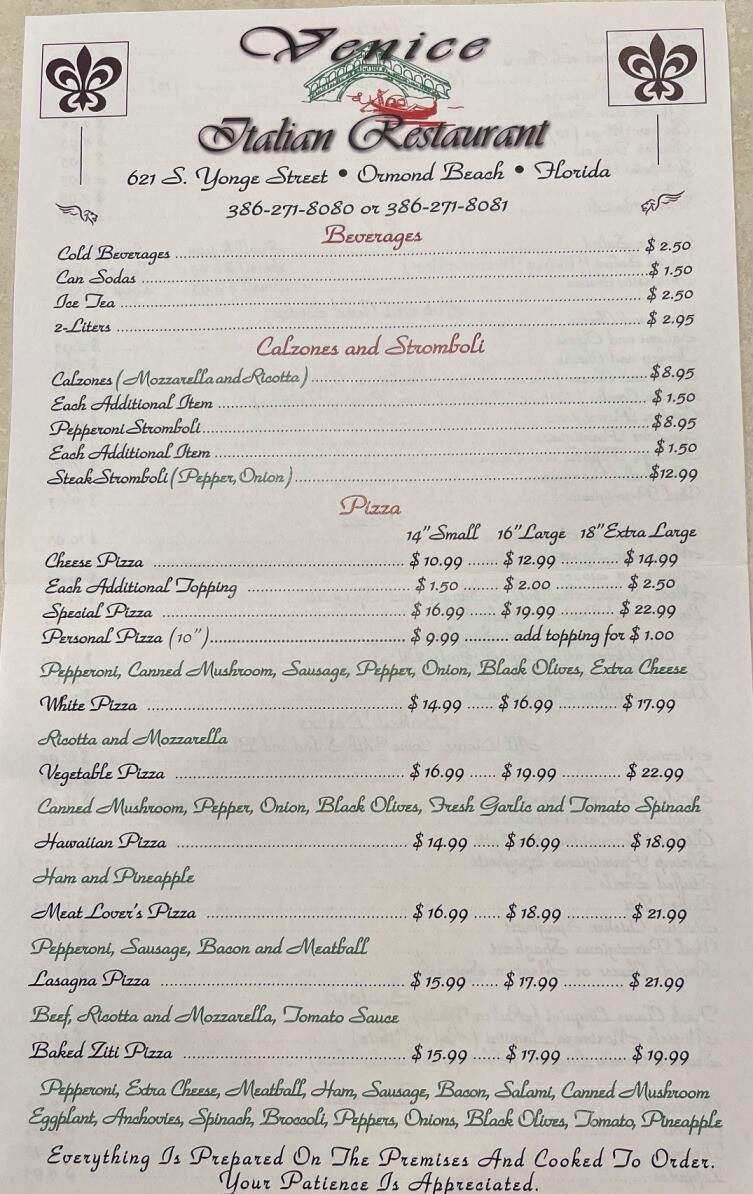 Venice
Italian Restaurant
621 S. Yonge Street • Ormond Beach • Florida
386-271-8080 or 386-271-8081
Beverages
Cold Beverages $ 2.50
Can Sodas $ 1.50
Ice Tea $ 2.50
2-Liters $ 2.95
Calzones and Stromboli
Calzones (Mozzarella and Ricotta) $8.95
Each Additional Item $ 1.50
Pepperoni Stromboli $8.95
Each Additional Item $ 1.50
Steak Stromboli (Pepper, Onion) $12.99
Pizza
14" Small 16" Large 18" Extra Large
Cheese Pizza $ 10.99 $ 12.99 $ 14.99
Each Additional Topping $ 1.50 $ 2.00 $ 2.50
Special Pizza $ 16.99 $ 19.99 $ 22.99
Personal Pizza (10") $ 9.99 add topping for $ 1.00
Pepperoni, Canned Mushroom, Sausage, Pepper, Onion, Black Olives, Extra Cheese
White Pizza $ 14.99 $ 16.99 $ 17.99
Ricotta and Mozzarella
Vegetable Pizza $ 16.99 $ 19.99 $ 22.99
Canned Mushroom, Pepper, Onion, Black Olives, Fresh Garlic and Tomato Spinach
Hawaiian Pizza $ 14.99 $ 16.99 $ 18.99
Ham and Pineapple
Meat Lover's Pizza $ 16.99 $ 18.99 $ 21.99
Pepperoni, Sausage, Bacon and Meatball
Lasagna Pizza $ 15.99 $ 17.99 $ 21.99
Beef, Ricotta and Mozzarella, Tomato Sauce
Baked Ziti Pizza $ 15.99 $ 17.99 $ 19.99
Pepperoni, Extra Cheese, Meatball, Ham, Sausage, Bacon, Salami, Canned Mushroom
Eggplant, Anchovies, Spinach, Broccoli, Peppers, Onions, Black Olives, Tomato, Pineapple
Everything Is Prepared On The Premises And Cooked To Order.
Your Patience Is Appreciated.